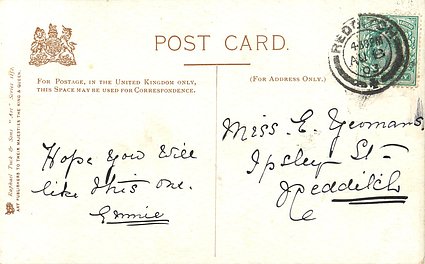 POST CARD.
FOR POSTAGE, IN THE UNITED KINGDOM ONLY,
THIS SPACE MAY BE USED FOR CORRESPONDENCE.
(FOR ADDRESS ONLY.)
Hope you will
like this one.
Ennie
Miss. E. Yeomans,
Ipsley St-
Redditch
Raphael Tuck & Sons "Art" Series
ART PUBLISHERS TO THEIR MAJESTIES THE KING & QUEEN.